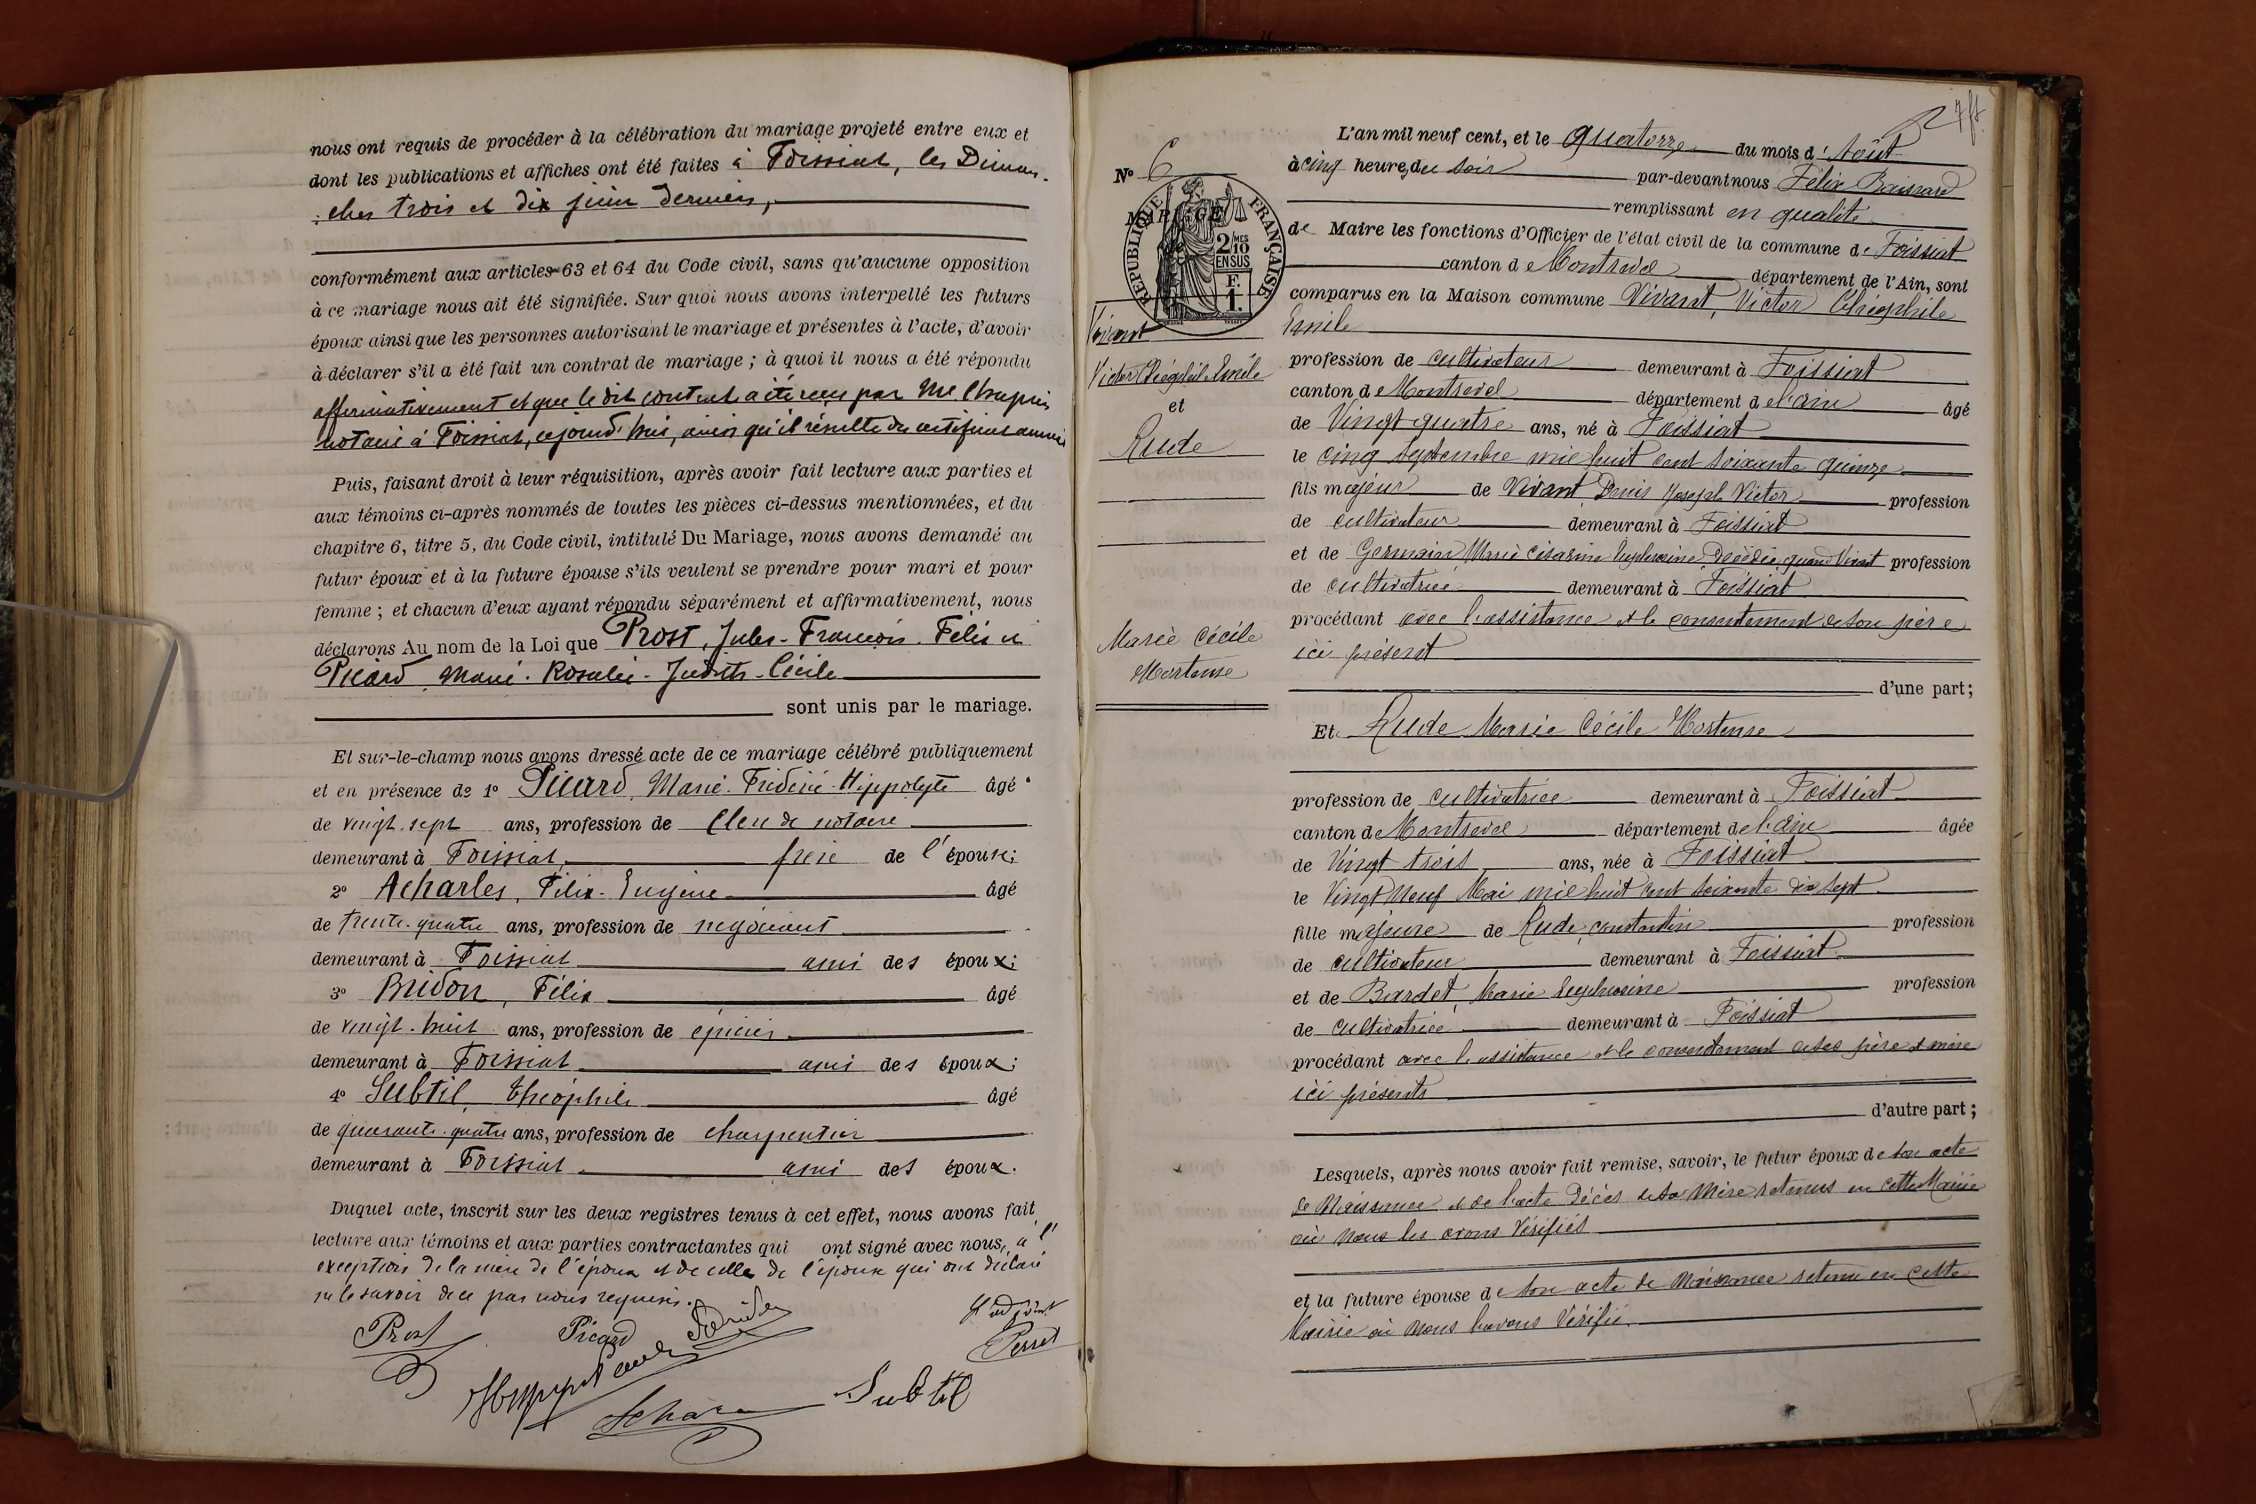 nous ont requis de procéder à la célébration du mariage projeté entre eux et
dont les publications et affiches ont été faites à Foissiat, les Diman-
-ches trois et dix juin derniers,
conformément aux articles 63 et 64 du Code civil, sans qu'aucune opposition
à ce mariage nous ait été signifiée. Sur quoi nous avons interpellé les futurs
époux ainsi que les personnes autorisant le mariage et présentes à l'acte, d'avoir
à déclarer s'il a été fait un contrat de mariage ; à quoi il nous a été répondu
affirmativement et que le dit contrat a été reçu par Me Chapuis
notaire à Foissiat, cejourd'hui, ainsi qu'il résulte du certificat annexé
Puis, faisant droit à leur réquisition, après avoir fait lecture aux parties et
aux témoins ci-après nommés de toutes les pièces ci-dessus mentionnées, et du
chapitre 6, titre 5, du Code civil, intitulé Du Mariage, nous avons demandé au
futur époux et à la future épouse s'ils veulent se prendre pour mari et pour
femme ; et chacun d'eux ayant répondu séparément et affirmativement, nous
déclarons Au nom de la Loi que Prost, Jules-François-Félix et
Picard, Marie-Rosalie-Judith-Cécile
sont unis par le mariage.
Et sur-le-champ nous avons dressé acte de ce mariage célébré publiquement
et en présence de 1° Picard, Marie-Frédéric-Hippolyte âgé
de vingt-sept ans, profession de Clerc de notaire
demeurant à Foissiat, frère de l'épouse;
2° Acharles, Félix-Eugène âgé
de trente-quatre ans, profession de négociant
demeurant à Foissiat ami des époux;
3° Bridon, Félix âgé
de vingt-huit ans, profession de épicier
demeurant à Foissiat ami des époux;
4° Subtil, Théophile âgé
de quarante-quatre ans, profession de charpentier
demeurant à Foissiat ami des époux.
Duquel acte, inscrit sur les deux registres tenus à cet effet, nous avons fait
lecture aux témoins et aux parties contractantes qui ont signé avec nous, à l'
exception de la mère de l'époux et de celle de l'épouse qui ont déclaré
ne le savoir de ce par nous requises.
Prost Picard Bridon L'adjoint
Hippolyte Picard Perret
Acharles Subtil
N° 6
MARIAGE
RÉPUBLIQUE FRANÇAISE
2/10 MES
EN SUS
F.
1.
Vivant
Victor Théophile Emile
et
Rude
Marie Cécile
Hortense
L'an mil neuf cent, et le quatorze du mois d'Août
à cinq heures du soir par-devant nous Félix Boissard
remplissant en qualité
de Maire les fonctions d'Officier de l'état civil de la commune de Foissiat
canton de Montrevel département de l'Ain, sont
comparus en la Maison commune Vivant, Victor Théophile
Emile
profession de cultivateur demeurant à Foissiat
canton de Montrevel département de l'ain âgé
de Vingt quatre ans, né à Foissiat
le cinq Septembre mil huit cent soixante quinze
fils majeur de Vivant Denis Joseph Victor profession
de cultivateur demeurant à Foissiat
et de Germain Marie Césarine Euphrosine, Décédée, quand Vivait profession
de cultivatrice demeurant à Foissiat
procédant avec l'assistance et le consentement de son père
ici présent
d'une part;
Et Rude Marie Cécile Hortense
profession de cultivatrice demeurant à Foissiat
canton de Montrevel département de l'ain âgée
de Vingt trois ans, née à Foissiat
le Vingt Neuf Mai mil huit cent soixante dix sept
fille majeure de Rude, constantin profession
de cultivateur demeurant à Foissiat
et de Bardet, Marie Euphrosine profession
de cultivatrice demeurant à Foissiat
procédant avec l'assistance et le consentement de ses père et mère
ici présents
d'autre part ;
Lesquels, après nous avoir fait remise, savoir, le futur époux de son acte
de Naissance et de l'acte Décès de sa Mère retenus en cette Mairie
où nous les avons Vérifiés
et la future épouse de son acte de Naissance retenu en cette
Mairie où nous l'avons Vérifié.